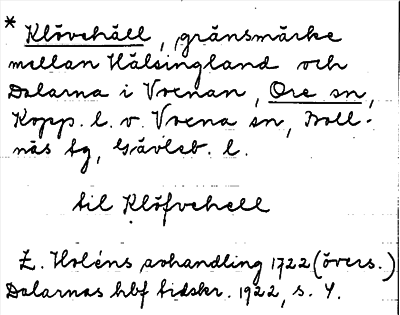 * Klövehäll, gränsmärke
mellan Hälsingland och
Dalarna i Voxnan, Ore sn,
Kopp. l. v. Voxna sn, Boll-
näs tg, Gävleb. l.
til Klöfvehell
Z. Holéns avhandling 1722 (övers.)
Dalarnas hbf tidskr. 1922, s. 4.